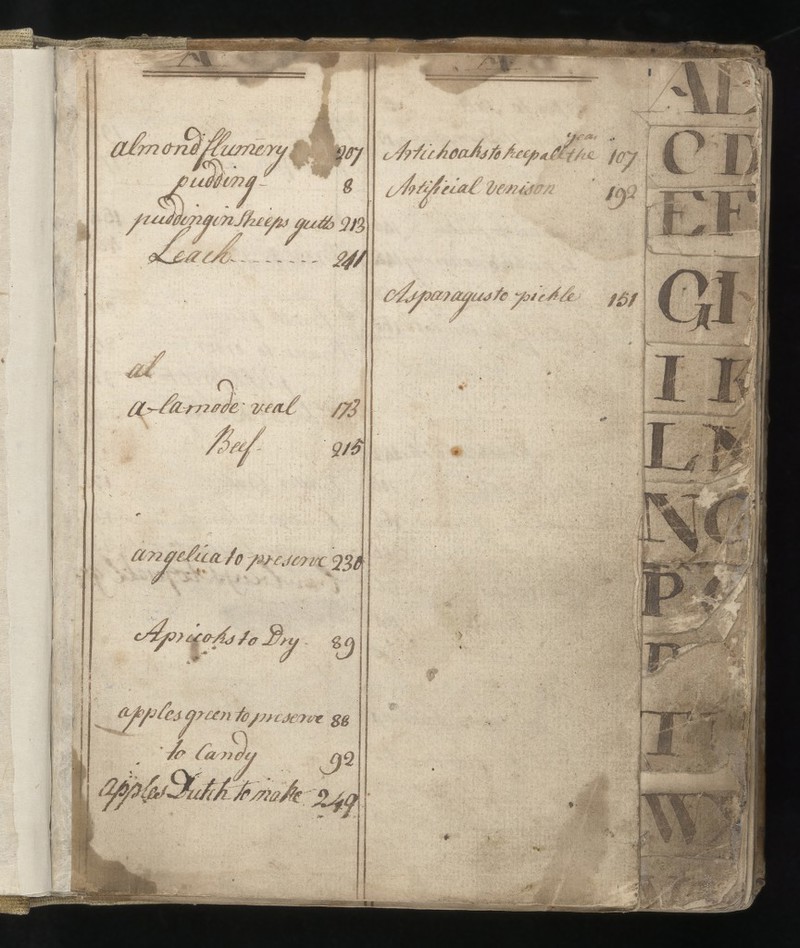 almond flumery 207
pudding - 8
pudding in Sheeps gutts 213
Leach .......... 241
al
a-lamode veal 173
Beef - 215
angelica to preserve 230
Apricoks to Dry - 89
apples green to preserve 88
to Candy 92
apples Dutch to make 249
year
Artichoaks to keep all the 107
Artificial venison 192
Asparagus to pickle 151
A
C D
E F
G
I K
L
N
P
T
W